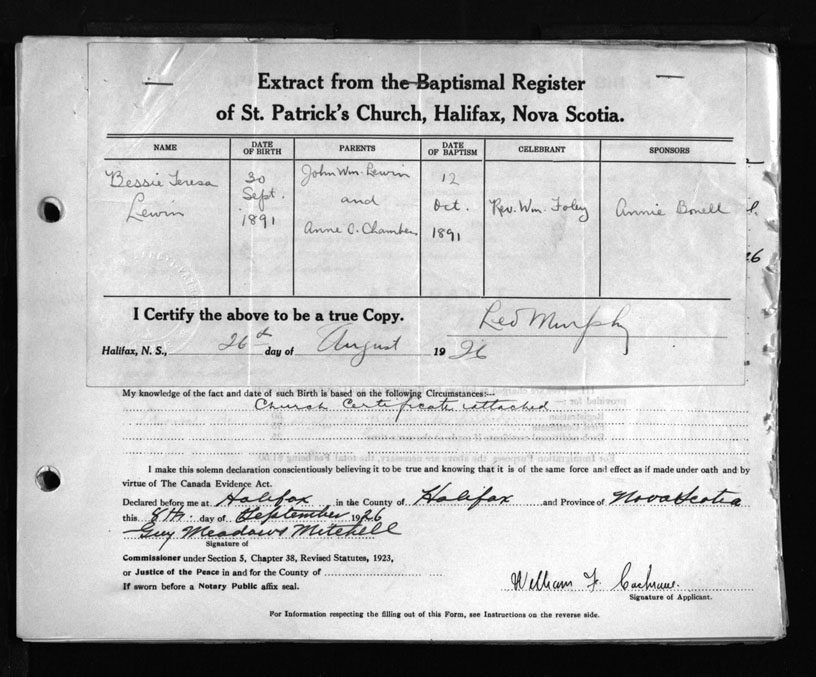 Extract from the Baptismal Register
of St. Patrick's Church, Halifax, Nova Scotia.
NAME DATE OF BIRTH PARENTS DATE OF BAPTISM CELEBRANT SPONSORS
Bessie Teresa 30 John Wm. Lewin 12
Lewin Sept. and Oct. Rev. Wm. Foley Annie Bonell
1891 Anne C. Chambers 1891
I Certify the above to be a true Copy.
Leo Murphy
Halifax, N. S., 26th day of August 1926
26
My knowledge of the fact and date of such Birth is based on the following Circumstances:—
Church Certificate attached
I make this solemn declaration conscientiously believing it to be true and knowing that it is of the same force and effect as if made under oath and by
virtue of The Canada Evidence Act.
Declared before me at Halifax in the County of Halifax and Province of Nova Scotia
this 8th day of September 1926
Guy Meadows Mitchell
Signature of
Commissioner under Section 5, Chapter 38, Revised Statutes, 1923,
or Justice of the Peace in and for the County of
If sworn before a Notary Public affix seal.
William F. Cochrane.
Signature of Applicant.
For Information respecting the filling out of this Form, see Instructions on the reverse side.